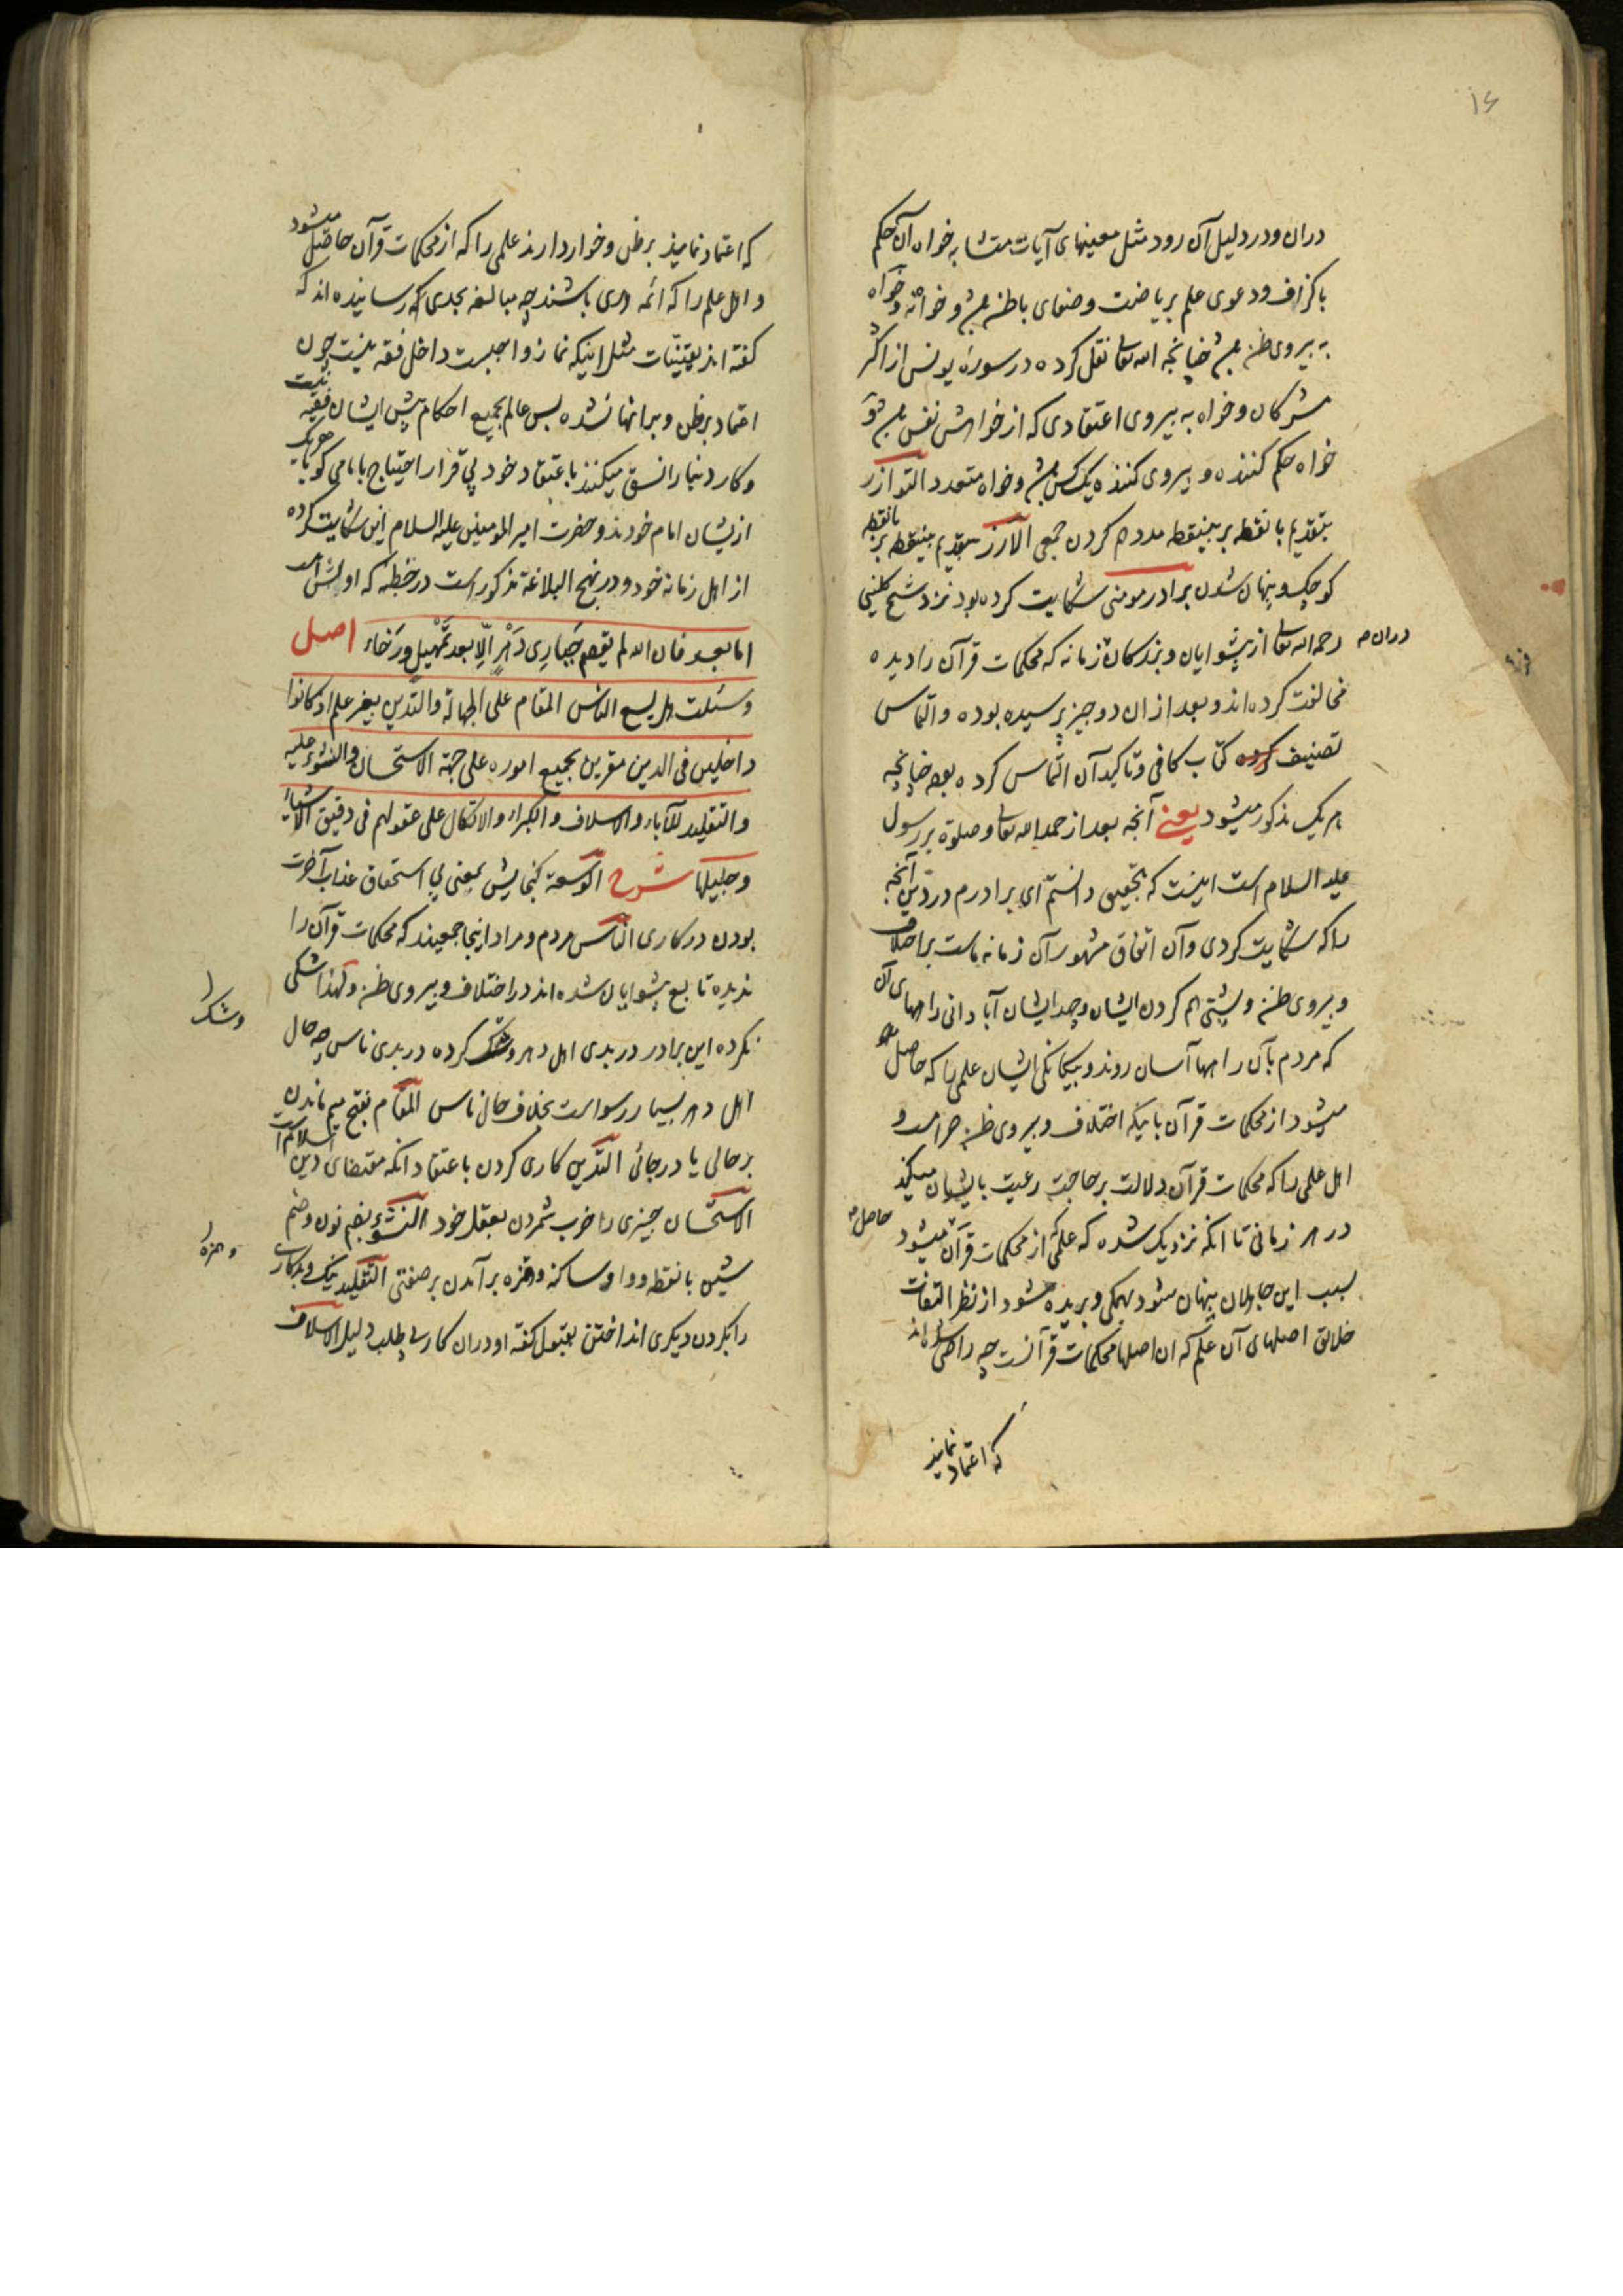 ۱۶
دران و در دلیل آن رود مثل معینهای آیات متشابه خواه آن حکم
با کزاف و دعوی علم بریاضت و صفای باطن و خواه نه و خواه
به پیروی ظن چنانچه الله تعا نقل کرده در سورهٔ یونس از اکثر
مشرکان و خواه به پیروی اعتقادی که از خواهش نفس
خواه حکم کننده و پیروی کننده یک کس و خواه متعدد التوازر
بتقدیم با نقطه بر بینقطه مدد هم کردن جمعی الارز بتقدیم بینقطه بر بانقطه
کوچک و پنهان شدن برادر مومنی شکایت کرده بود نزد شیخ کلینی
رحمه الله تعا از پیشوایان و بزرکان زمانه که محکمات قرآن را دیده
دران
مخالفت کرده اند و بعد ازان دو چیز پرسیده بوده و التماس
تصنیف کرده کتاب کافی و تاکید آن التماس کرده بوده چنانچه
هر یک مذکور میشود یعنی آنچه بعد از حمد الله تعا و صلوة بر رسول
علیه السلام است اینست که بتحقیق دانستم ای برادرم در دین آنچه
را که شکایت کردی و آن اتفاق مشهور آن زمانه ماست بر اختلاف
و پیروی ظن و پشتی هم کردن ایشان و جد ایشان آبادانی راههای آن
که مردم بآن راهها آسان روند و بیکانکی ایشان علمی را که حاصل
میشود از محکمات قرآن باینکه اختلاف و پیروی ظن حرامست و
اهل علمی را که محکمات قرآن دلالت بر حاجت رعیت بایشان میکند
در هر زمانی تا انکه نزدیک شده که علمی که از محکمات قرآن میشود
حاصل
بسبب این جاهلان پنهان شود بهمکی و بریده شود از نظر التفات
خلائق اصلهای آن علم که ان اصلها محکمات قرآنست چه راضی شده اند
که اعتماد نمایند
که اعتماد نمایند بر ظن و خوار دارند علمی را که از محکمات قرآن حاصل میشود
و اهل علم را که ائمه هدی باشند چه مبالغه بحدی که رسانیده اند که
کفته اند یقینیّات مثل اینکه نماز واجبست داخل فقه نیست چون
اعتماد بر ظن و بر انها نشده پس عالم بجمیع احکام پیش ایشان فقیه نیست
و کار دنیا را نسق میکنند باعتقاد خود پی قرار احتیاج بامامی کویا هر یک
از ایشان امام خودند و حضرت امیر المومنین علیه السلام این شکایت کرده
از اهل زمانه خود و در نهج البلاغة مذکور است در خطبه که اولش است
اما بعد فان الله لم یقصم جباری دهر الّا بعد تمهیل و رخاء اصل
و سئلت هل یسع الناس المقام علی الجهالة و التدین بغیر علم اذ کانوا
داخلین فی الدین مقرین بجمیع اموره علی جهة الاستحسان و النشوء علیه
و التقلید للآباء و الاسلاف و الکبراء و الاتکال علی عقولهم فی دقیق الاشیاء
و جلیلها شرح الوسعة کنجایش یعنی بی استحقاق عذاب آخرت
بودن در کاری الناس مردم و مراد اینجا جمعیند که محکمات قرآن را
ندیده تابع پیشوایان شده اند در اختلاف و پیروی ظن و لهذا شکی
نکرده این برادر در بدی اهل دهر و شک کرده در بدی ناس چه حال
و شک
اهل دهر بسیار رسواست بخلاف حال ناس المقام بفتح میم ماندن
بر حالی یا در جائی التدین کاری کردن باعتقاد انکه مقتضای دین اسلام است
الاستحسان چیزی را خوب شمردن بعقل خود النشوء بضم نون و ضم
شین با نقطه و واو ساکنه و همزه بر آمدن بر صفتی التقلید نیک و بد کاری
و همزه
را بکردن دیکری انداختن بقبول کفته او دران کار بی طلب دلیل الاسلاف